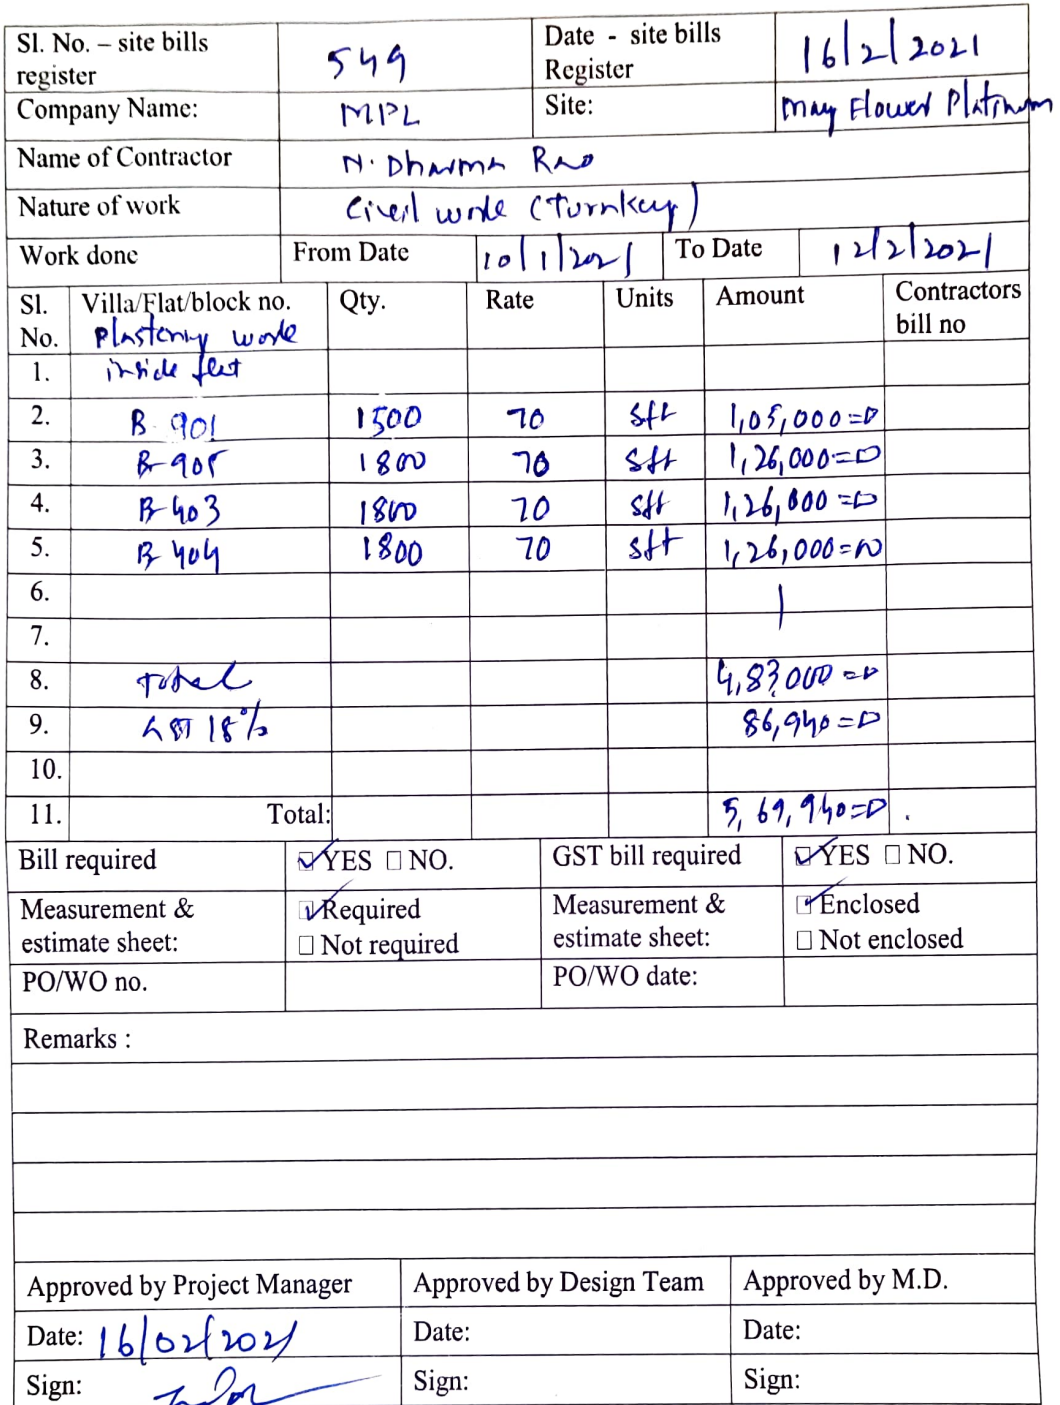 Sl. No. – site bills register 549 Date - site bills Register 16/2/2021
Company Name: MPL Site: May Flower Platinum
Name of Contractor N. Dharma Rao
Nature of work Civil work (Turnkey)
Work done From Date 10/1/2021 To Date 12/2/2021
Sl. No. Villa/Flat/block no. Qty. Rate Units Amount Contractors bill no
Plastering work
1. inside flat
2. B-901 1500 70 sft 1,05,000=0
3. B-905 1800 70 sft 1,26,000=0
4. B-403 1800 70 sft 1,26,000=0
5. B-404 1800 70 sft 1,26,000=00
6.
7.
8. Total 4,83,000=0
9. GST 18% 86,940=0
10.
11. Total: 5,69,940=0
Bill required YES NO. GST bill required YES NO.
Measurement & estimate sheet: Required Not required Measurement & estimate sheet: Enclosed Not enclosed
PO/WO no. PO/WO date:
Remarks :
Approved by Project Manager Approved by Design Team Approved by M.D.
Date: 16/02/2021 Date: Date:
Sign: Sign: Sign: